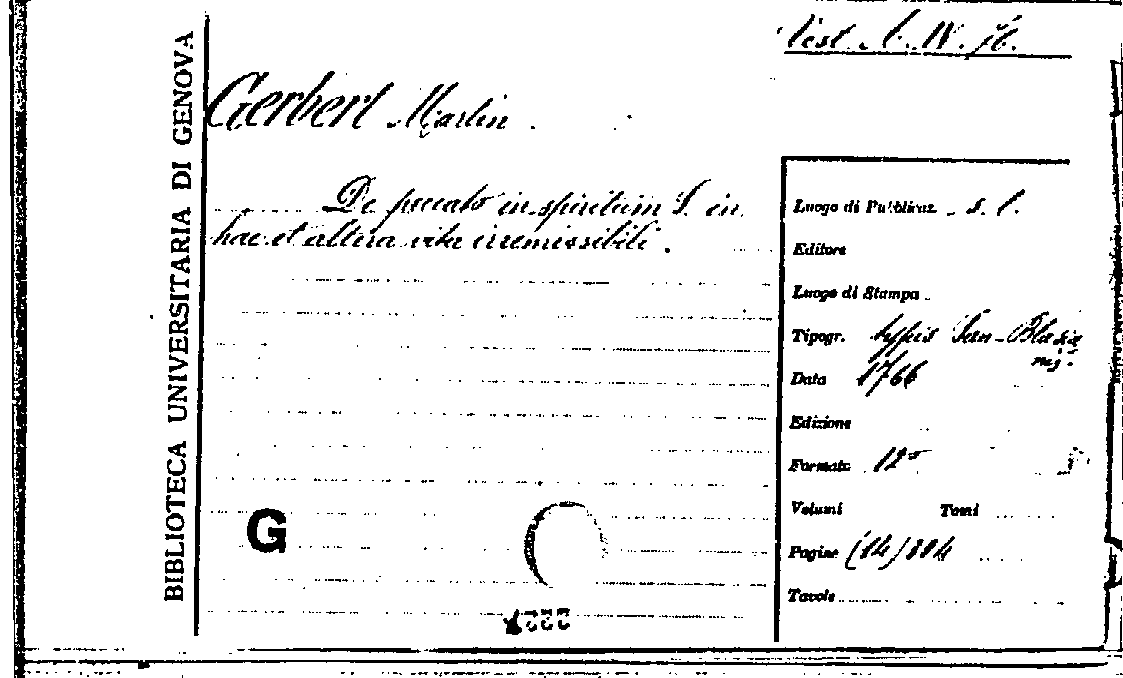 BIBLIOTECA UNIVERSITARIA DI GENOVA
Vest. A. IV. 76.
Gerbert Martin.
De peccato in spiritum S. in
hac et altera vita irremissibili.
Luogo di Pubblicaz. s. l.
Editore
Luogo di Stampa
Tipogr. typis San-Blasia
nis.
Data 1766
Edizione
Formato 12°
Volumi Tomi
Pagine (14)
Tavole
G